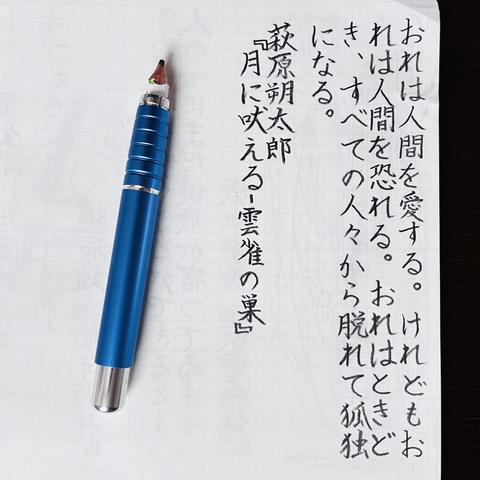 おれは人間を愛する。けれどもお
れは人間を恐れる。おれはときど
き、すべての人々から脱れて狐独
になる。
萩原朔太郎
『月に吠える-雲雀の巣』